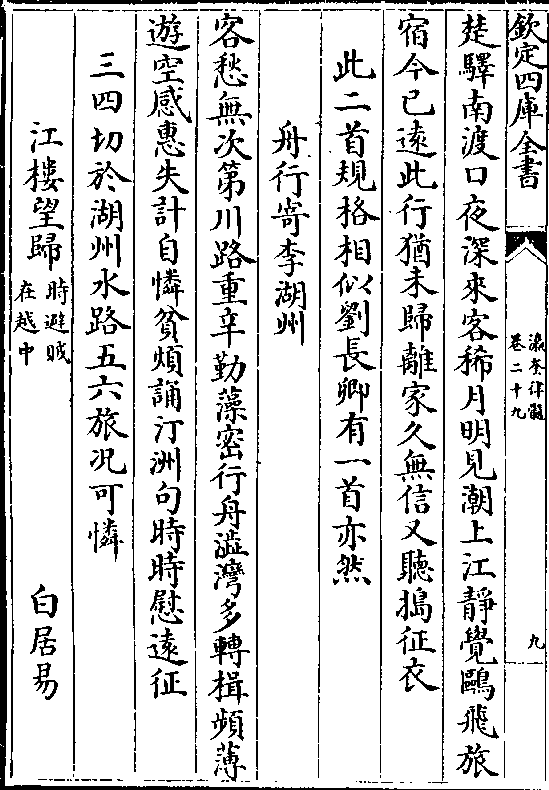 欽定四庫全書
瀛奎律髓
卷二十九
九
楚驛南渡口夜深來客稀月明見潮上江靜覺鷗飛旅
宿今已遠此行猶未歸離家久無信又聽搗征衣
此二首規格相似劉長卿有一首亦然
舟行寄李湖州
客愁無次第川路重辛勤藻密行舟澁灣多轉楫頻薄
遊空感惠失計自憐貧頻誦汀洲句時時慰遠征
三四切於湖州水路五六旅况可憐
江樓望歸 時避賊在越中 白居易